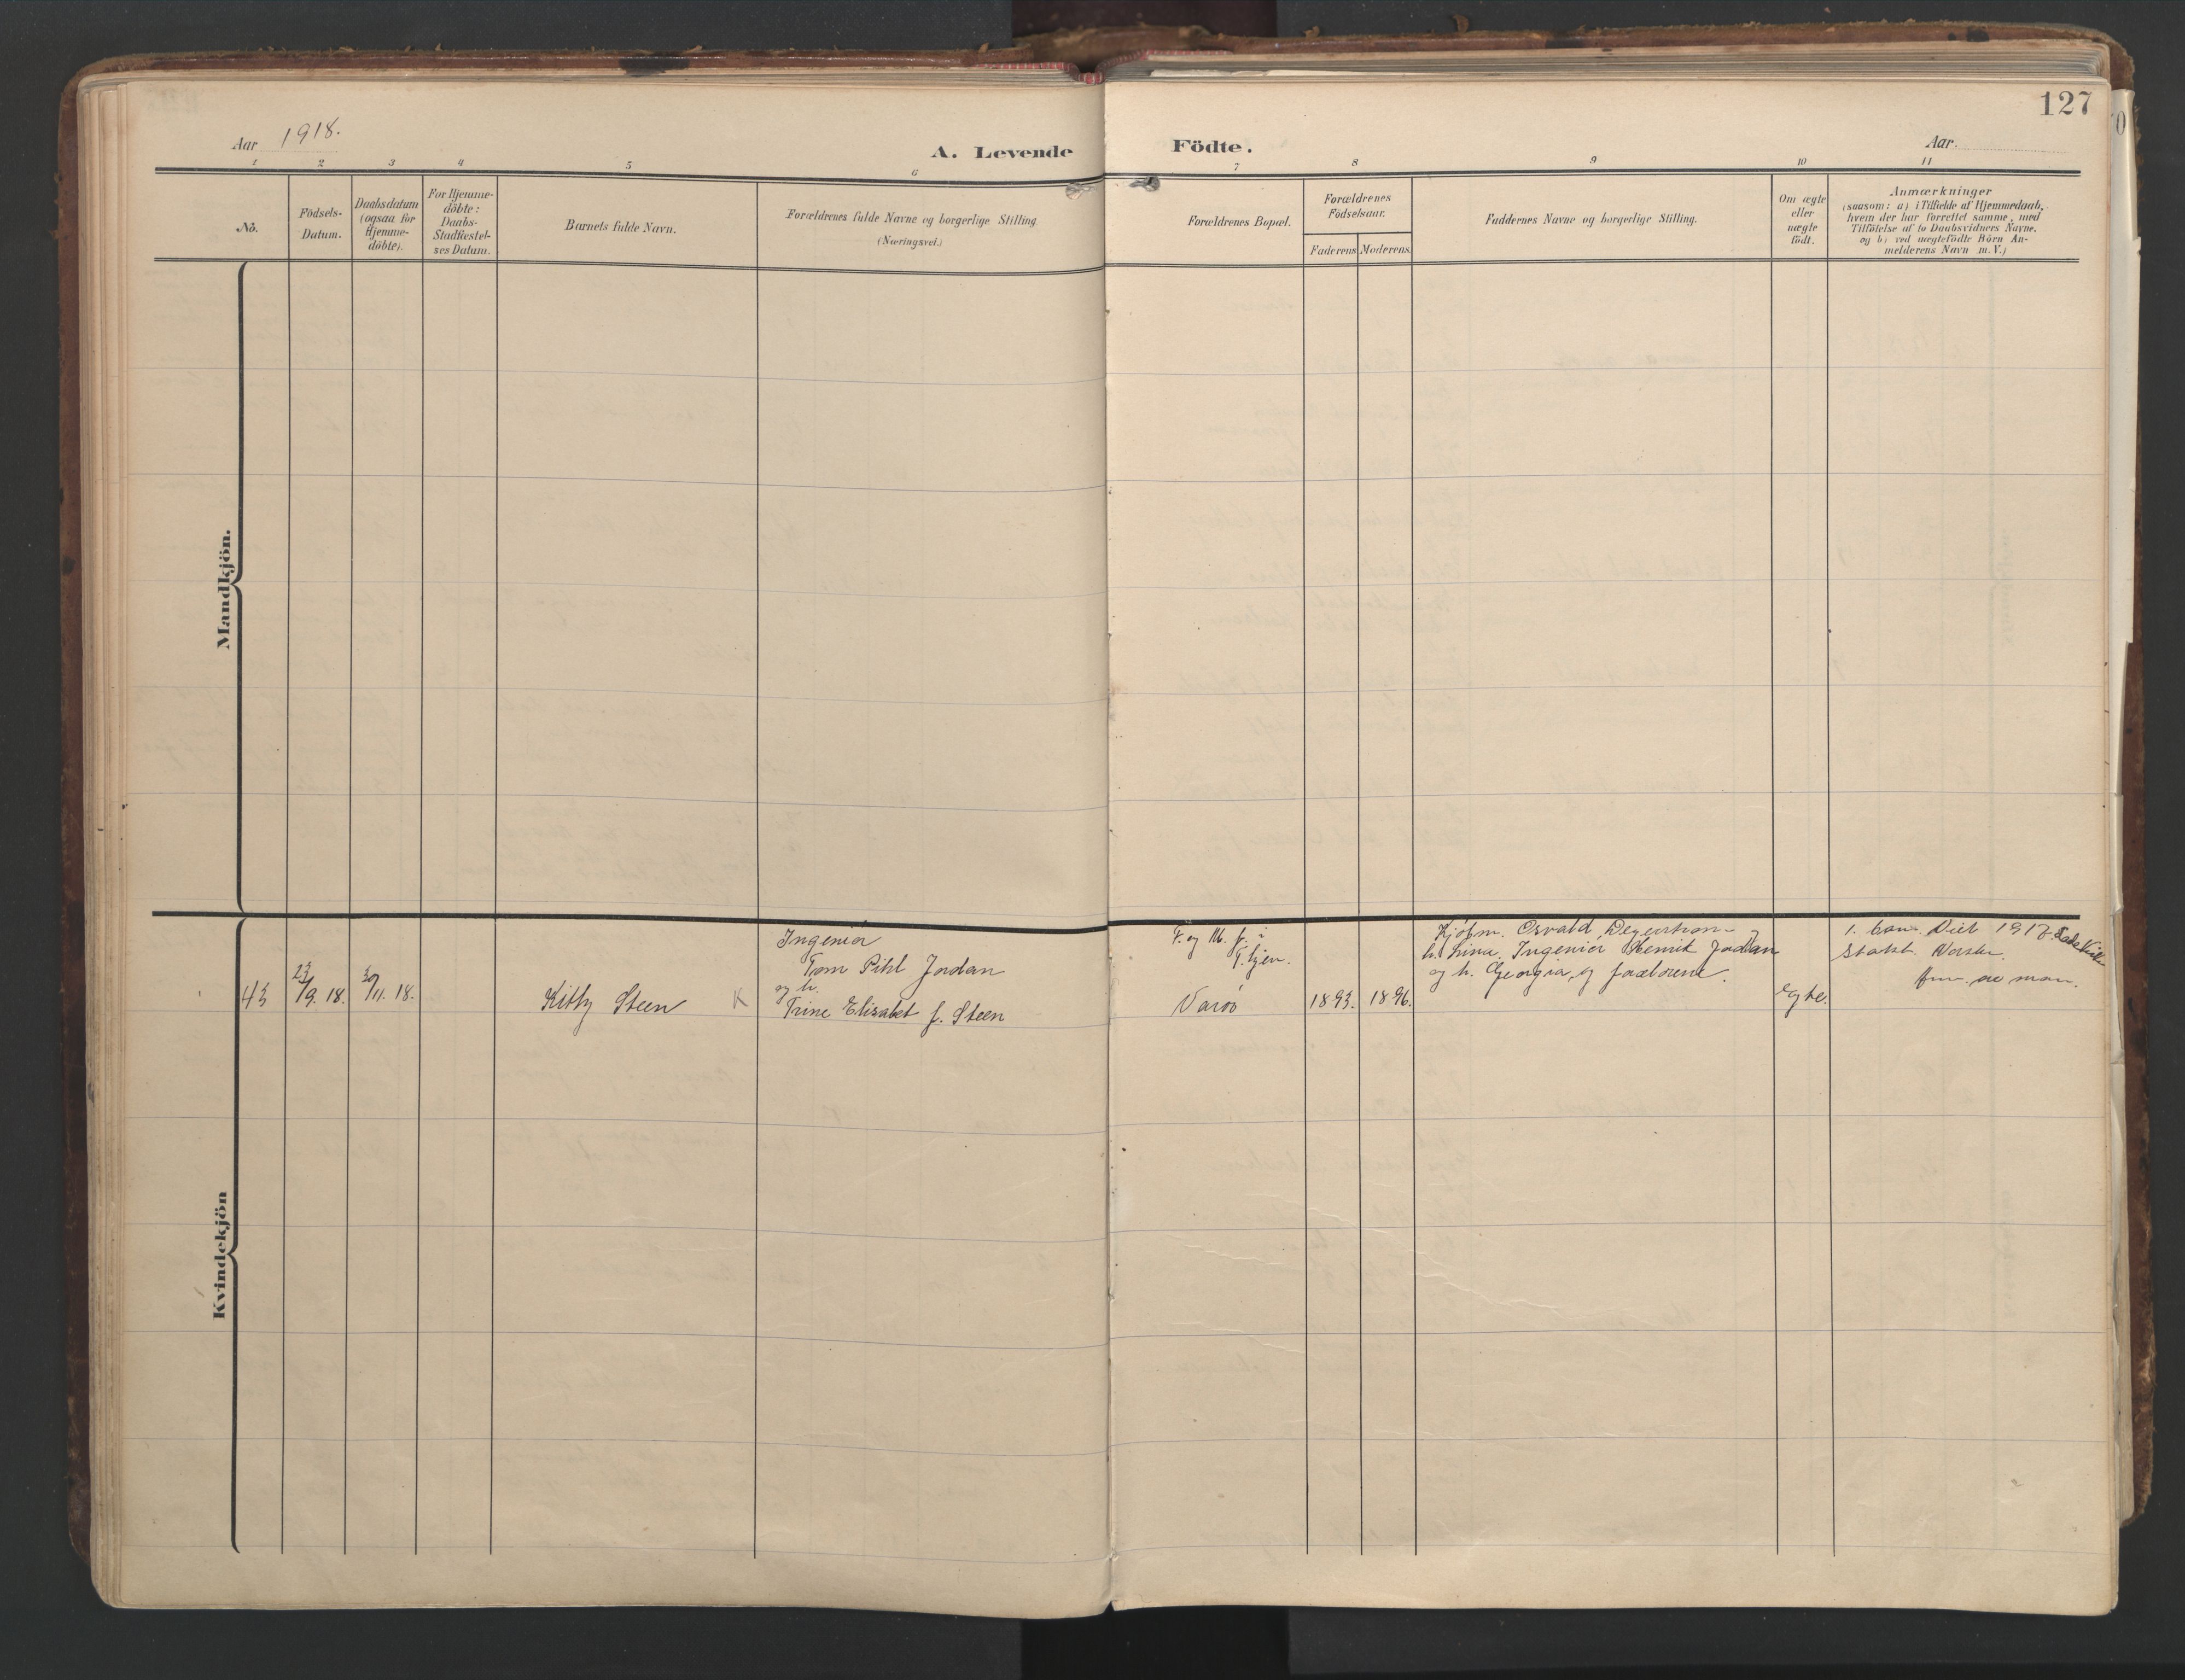 127
Aar 1918.
A. Levende Födte.
Aar
1 2 3 4 5 6 7 8 9 10 11
No.
Födsels-
Datum.
Daabsdatum
(ogsaa for
Hjemme-
döbte).
For Hjemme-
döbte:
Daabs-
Stadfæstel-
ses Datum.
Barnets fulde Navn.
Forældrenes fulde Navne og borgerlige Stilling
(Næringsvei.)
Forældrenes Bopæl.
Forældrenes
Födselsaar.
Faderens Moderens.
Faddernes Navne og borgerlige Stilling.
Om ægte
eller
uægte
födt.
Anmærkninger
(saasom: a) i Tilfælde af Hjemmedaab,
hvem der har forrettet samme, med
Tilföielse af to Daabsvidners Navne.
og b) ved uægtefödte Börn An-
melderens Navn m. V.)
Mandkjön.
Kvindekjön
43
23/9. 18.
30/11. 18.
Kitty Steen K
Ingeniör
Tom Pihl Jordan
og h.
Trine Elisabet f. Steen
F. og M. f. i
Vardö
1893. 1896.
Kjöbm. Osvald
h. Lina, Ingeniör Henrik Jordan
og h. Georgia, og forældrene.
egte.
1.